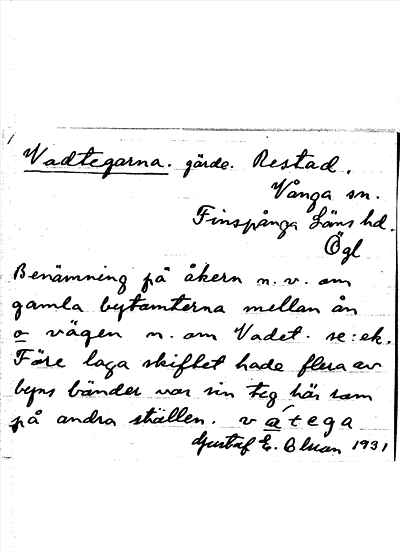 Vadtegarna. gärde. Restad.
Vånga sn.
Finspånga Läns hd.
Ögl
Benämning på åkern n. v. om
gamla bytomterna mellan ån
o vägen n. om Vadet. se: ek.
Före laga skiftet hade flera av
byns bönder var sin teg här som
på andra ställen. vátega
Gustaf E. 1931